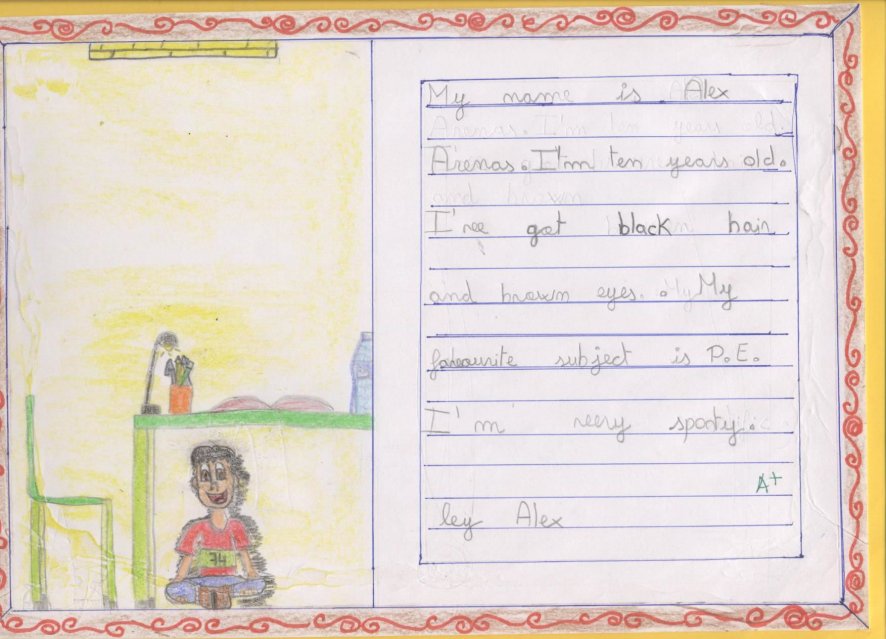 My name is Alex
Arenas. I'm ten years old.
I've got black hair
and brown eyes. My
favourite subject is P.E.
I'm very sporty.
A+
by Alex
74